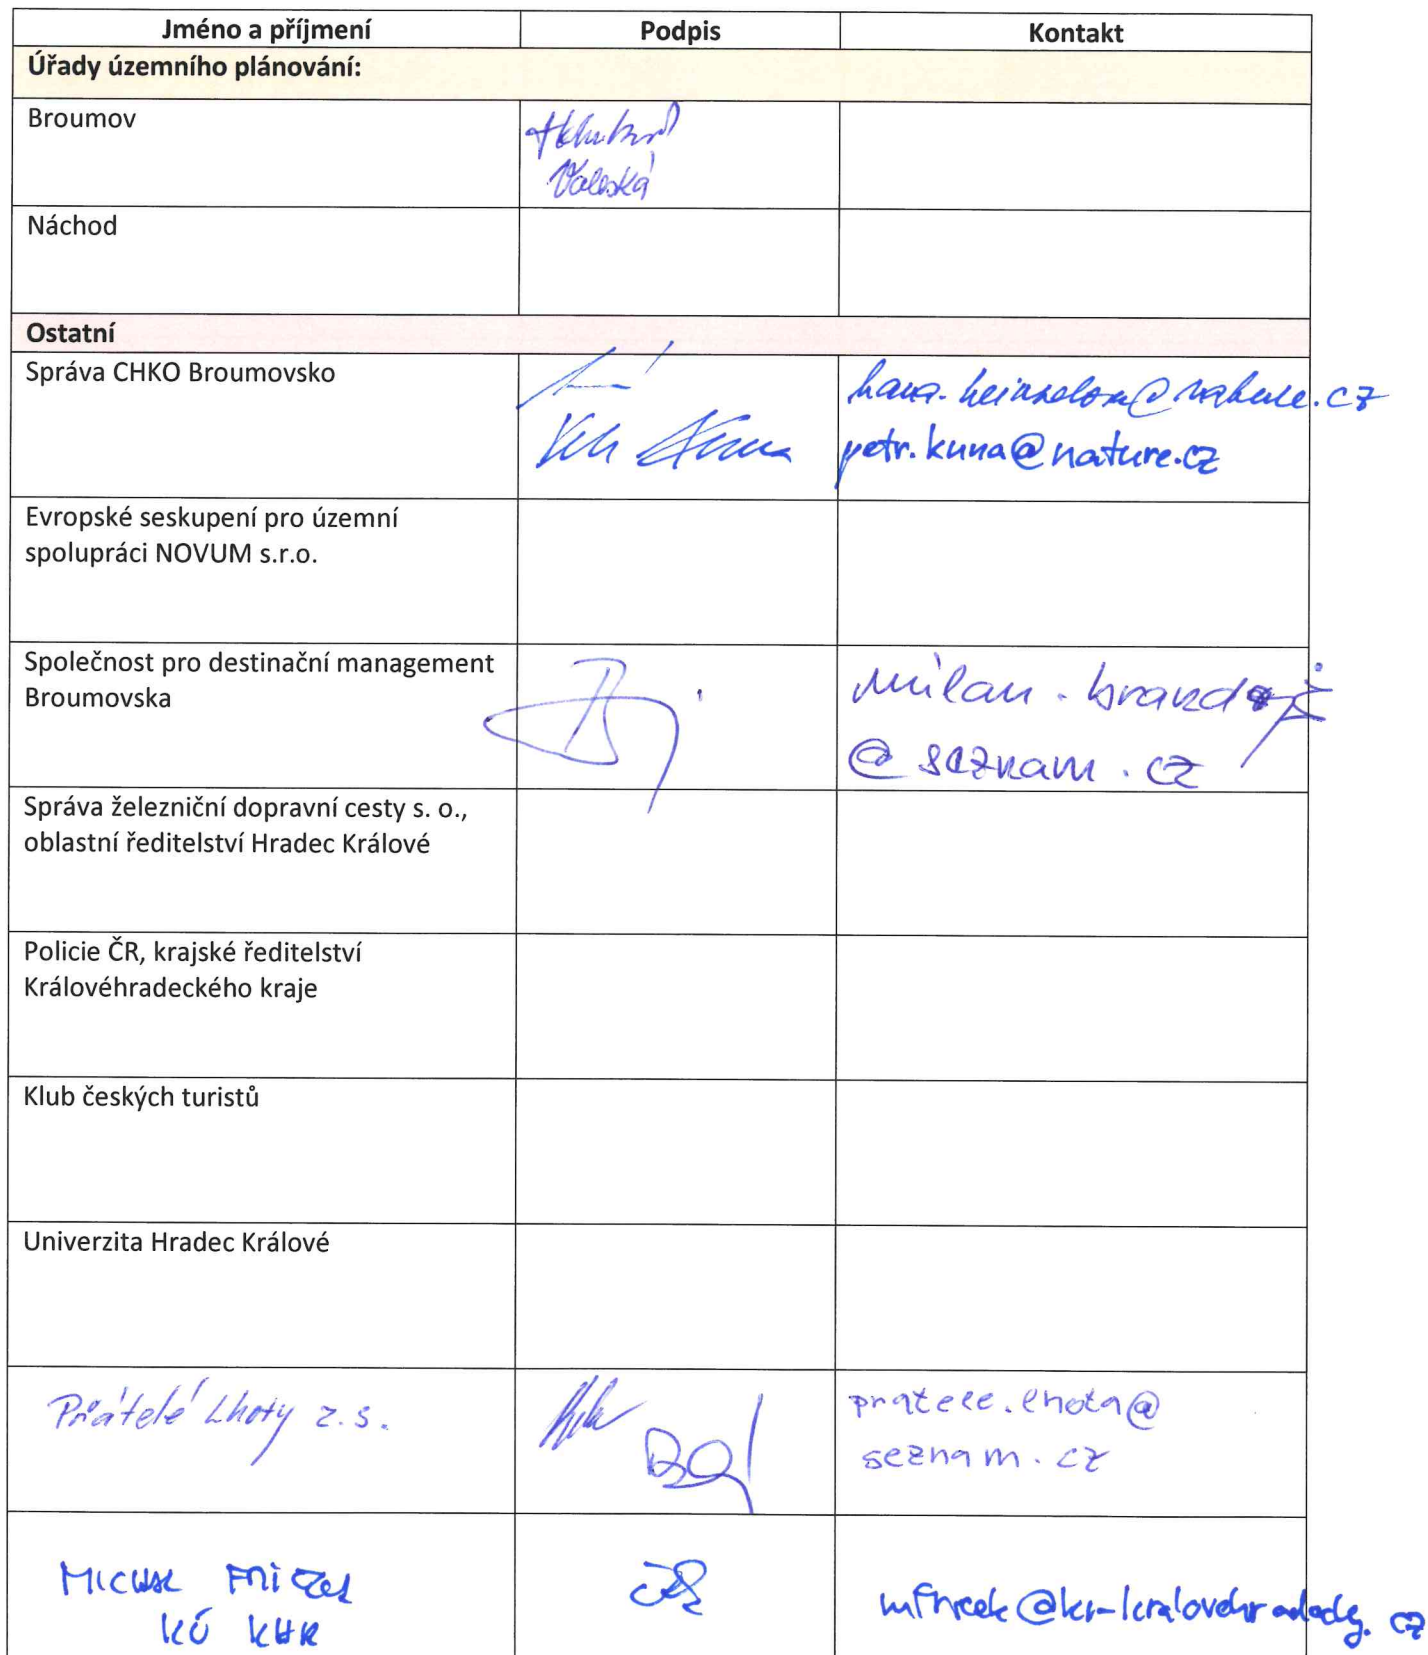 Jméno a příjmení Podpis Kontakt
Úřady územního plánování:
Broumov
Valeská
Náchod
Ostatní
Správa CHKO Broumovsko
petr.kuna@nature.cz
Evropské seskupení pro územní
spolupráci NOVUM s.r.o.
Společnost pro destinační management
Broumovska
milan.brandejs
@seznam.cz
Správa železniční dopravní cesty s. o.,
oblastní ředitelství Hradec Králové
Policie ČR, krajské ředitelství
Královéhradeckého kraje
Klub českých turistů
Univerzita Hradec Králové
Přátelé Lhoty z.s.
pratele.lhota@
seznam.cz
KÚ KHK